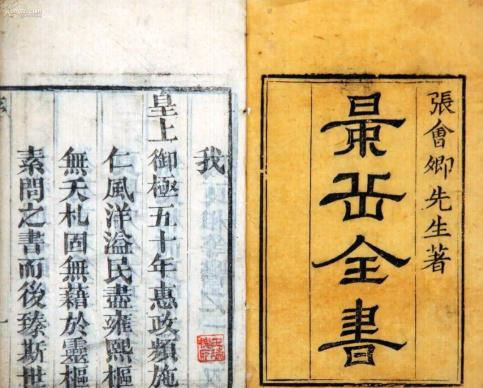 張會卿先生著
景岳全書
我
皇上御極五十年惠政頻施
仁風洋溢民盡雍熙
無夭札固無藉於靈樞
素問之書而後臻斯世